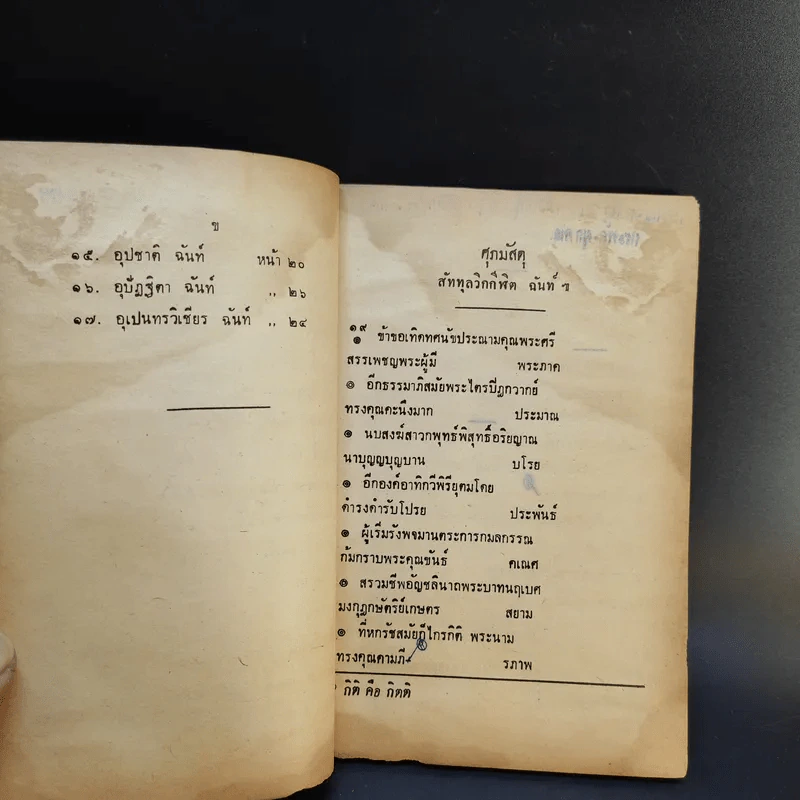 ข
๑๕. อุปชาติ ฉันท์ หน้า ๒๐
๑๖. อุปัฏฐิตา ฉันท์ ,, ๒๖
๑๗. อุเปนทรวิเชียร ฉันท์ ,, ๒๔
ศุภมัสตุ
สัททุลวิกกีฬิต ฉันท์
๑๙
๏ ข้าขอเทิดทศนัขประณามคุณพระศรี
สรรเพชญพระผู้มี พระภาค
๏ อีกธรรมาภิสมัยพระไตรปิฎกวากย์
ทรงคุณคะนึงมาก ประมาณ
๏ นบสงฆ์สาวกพุทธ์พิสุทธิ์อริยญาณ
นาบุญญบุญบาน บโรย
๏ อีกองค์อาทิกวีพิรียุตมโดย
ดำรงดำรับโปรย ประพันธ์
๏ ผู้เริ่มรังพจมานตระการกมลกรรณ
ก้มกราบพระคุณขันธ์ คเณศ
๏ สรวมชีพอัญชลินาถพระบาทนฤเบศ
มงกุฎกษัตริย์เกษตร สยาม
๏ ที่หกรัชสมัยก็ไกรกิติ พระนาม
ทรงคุณคามภี- รภาพ
กิติ คือ กิตติ